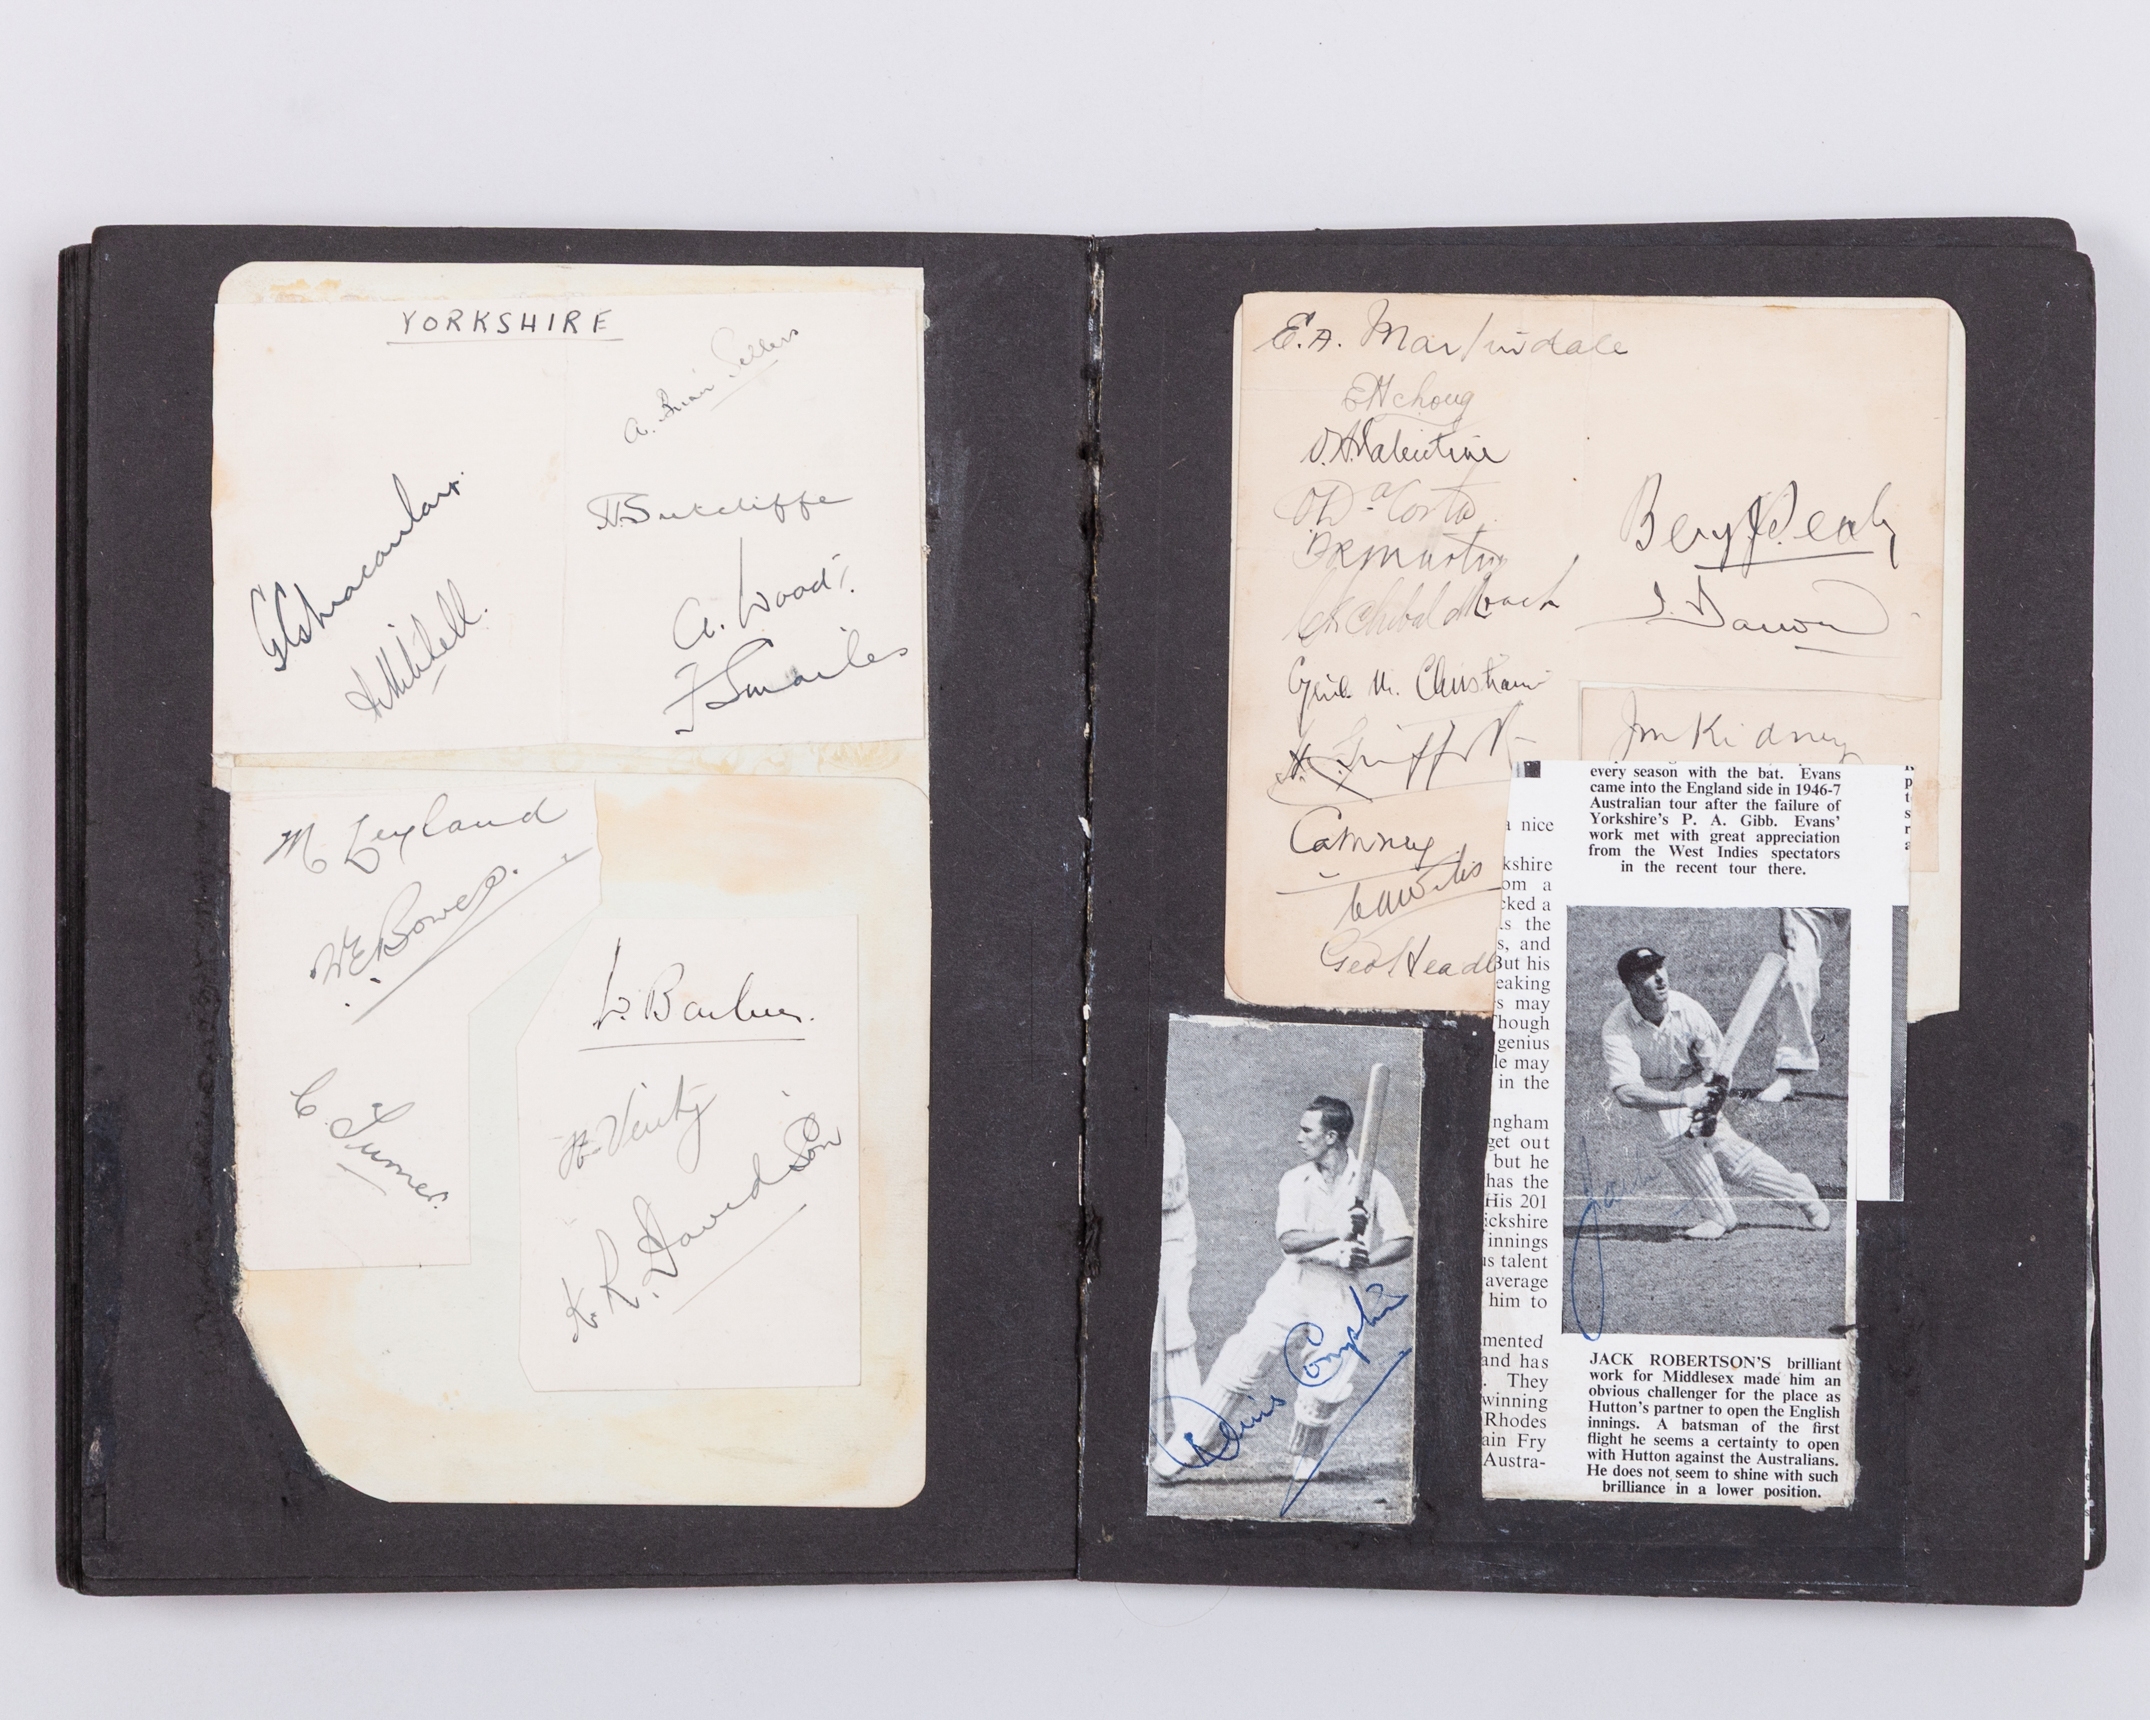 YORKSHIRE
A. Brian Sellers
H. Sutcliffe
A. Wood.
T. F. Smailes
A. Mitchell.
M Leyland
W E Bowes.
C. Turner.
W. Barber.
H. Verity
K. R. Davidson
E. A. Martindale
E Achong
V. A. Valentine
O. Da Costa
F R Martin
Archibald Roach
Cyril M. Christiani
H. C. Griffith
C A Merry
C A Wiles
Geo Headl
Ben J Sealy
Jm Kidney
every season with the bat. Evans
came into the England side in 1946-7
Australian tour after the failure of
Yorkshire's P. A. Gibb. Evans'
work met with great appreciation
from the West Indies spectators
in the recent tour there.
a nice
kshire
om a
cked a
s the
s, and
But his
eaking
s may
Though
genius
le may
in the
ngham
get out
but he
has the
His 201
ickshire
innings
us talent
average
him to
mented
and has
. They
winning
Rhodes
ain Fry
Austra-
Denis Compton
Jack
JACK ROBERTSON'S brilliant
work for Middlesex made him an
obvious challenger for the place as
Hutton's partner to open the English
innings. A batsman of the first
flight he seems a certainty to open
with Hutton against the Australians.
He does not seem to shine with such
brilliance in a lower position.